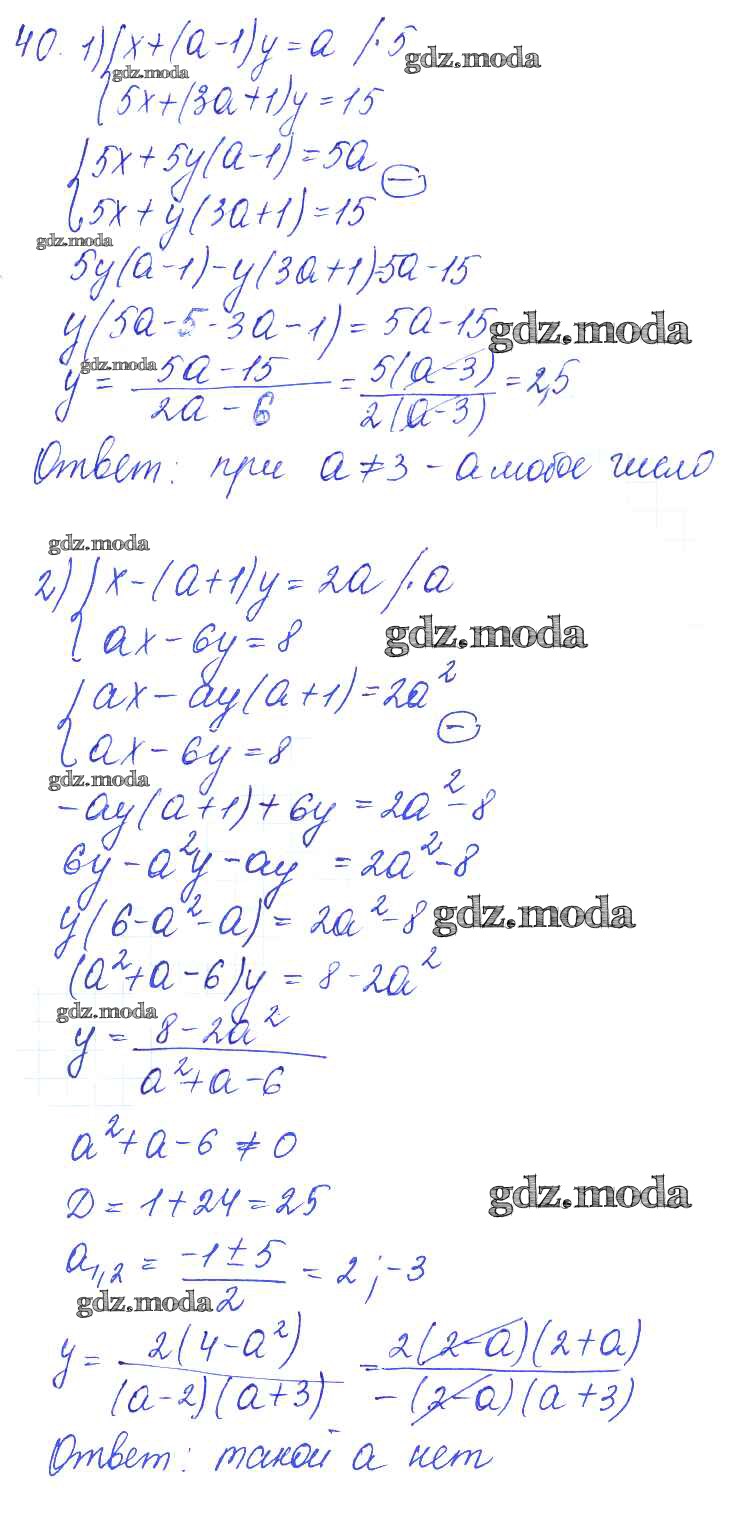 40. 1) { x+(a-1)y=a /·5
gdz.moda
gdz.moda
{ 5x+(3a+1)y=15
{ 5x+5y(a-1)=5a
(-)
{ 5x+y(3a+1)=15
gdz.moda
5y(a-1)-y(3a+1)=5a-15
y(5a-5-3a-1)=5a-15
gdz.moda
gdz.moda
y=(5a-15)/(2a-6)=5(a-3)/2(a-3)=2,5
Ответ: при a≠3 - a любое число
gdz.moda
2) { x-(a+1)y=2a /·a
{ ax-6y=8
gdz.moda
{ ax-ay(a+1)=2a²
(-)
{ ax-6y=8
gdz.moda
-ay(a+1)+6y=2a²-8
6y-a²y-ay =2a²-8
y(6-a²-a)=2a²-8
gdz.moda
(a²+a-6)y=8-2a²
gdz.moda
y=(8-2a²)/(a²+a-6)
a²+a-6≠0
D=1+24=25
gdz.moda
a₁,₂=(-1±5)/2=2;-3
gdz.moda
y=2(4-a²)/(a-2)(a+3)=2(2-a)(2+a)/-(2-a)(a+3)
Ответ: такой a нет